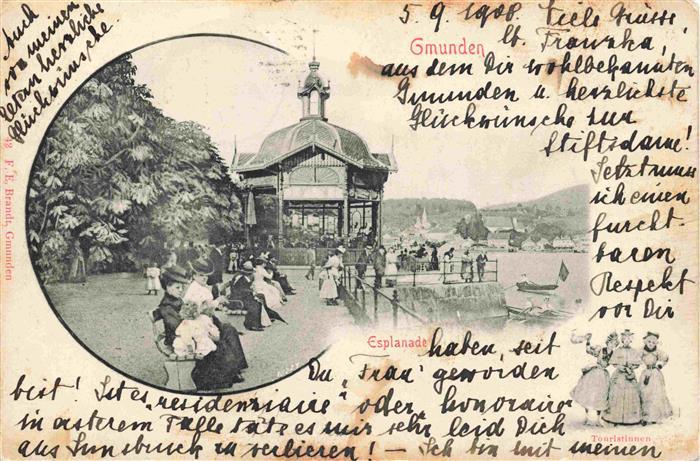 Auch
von meinem
Mann herzliche
Glückwünsche
5.9.1908. Viele Grüsse,
lb. Franzka,
Gmunden
aus dem Dir wohlbekannten
Gmunden u. herzlichste
Glückwünsche zur
Stiftsdame!
Jetzt muss
ich einen
furcht-
baren
Respekt
vor Dir
haben, seit
Du „Frau" geworden
bist! Ist es „residenziaire" oder „honoraire"
in ersterem Falle täte es mir sehr leid Dich
aus Innsbruck zu verlieren! – Ich bin mit meinen
Esplanade
Touristinnen
F. E. Brandt, Gmunden